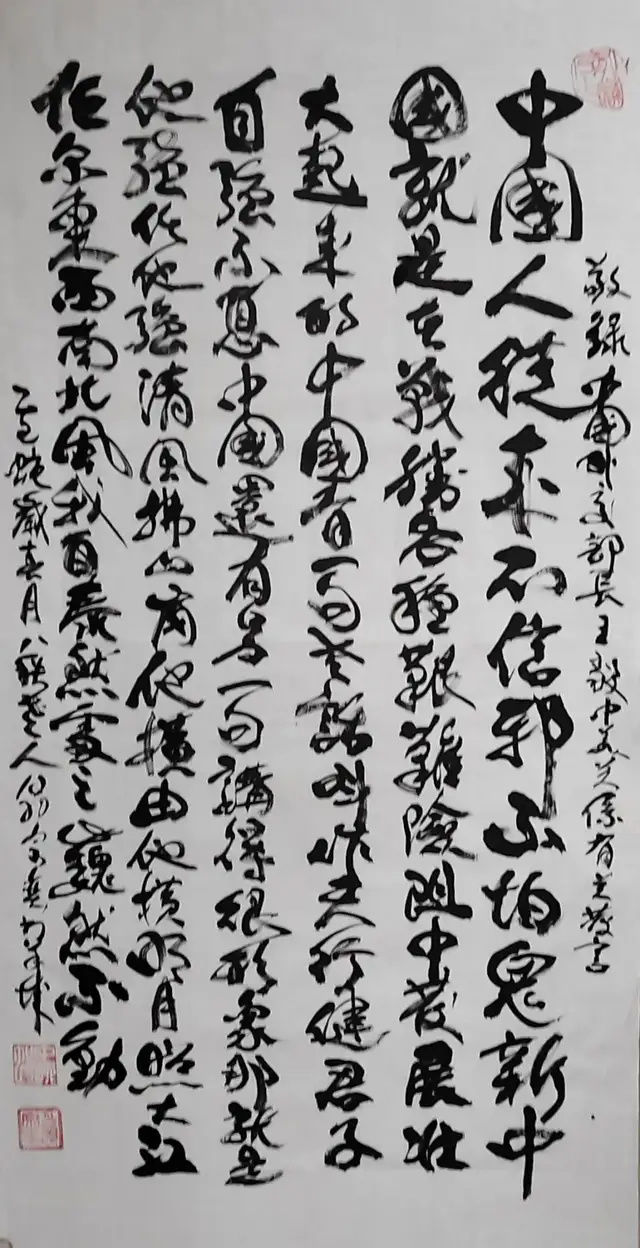 敬錄中國外交部長王毅中美关係有关發言
中國人從來不信邪不怕鬼新中
國就是在戰勝各種艱難險阻中發展壯
大起来的中國有一句老話叫作天行健君子
自強不息中國還有另一句講得很形象那就是
他強任他強清風拂山岗他橫由他橫明月照大江
任尔東西南北風我自泰然處之巍然不動
乙巳蛇歲春月八老人